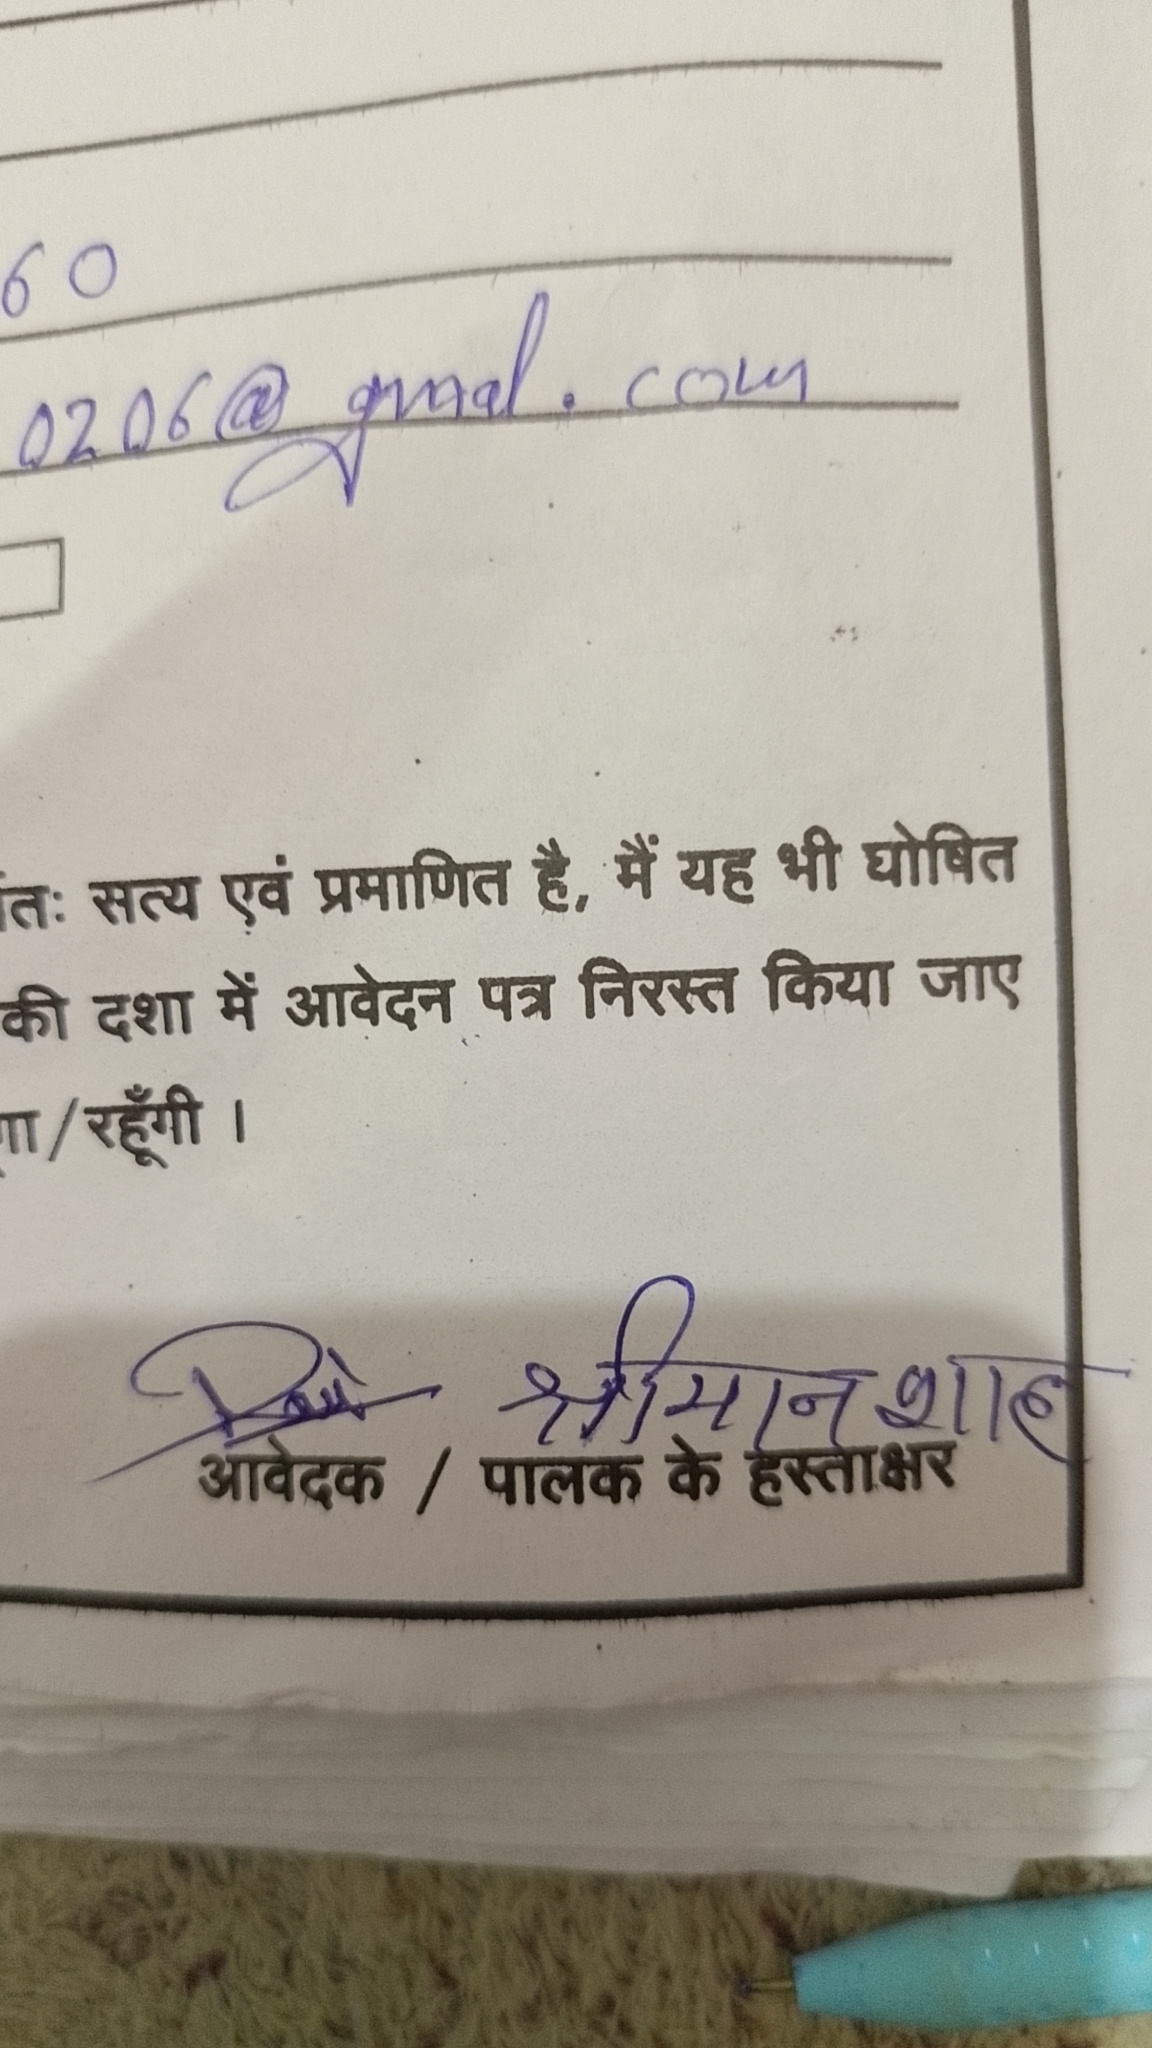 60
0206@gmail.com
सत्य एवं प्रमाणित है, मैं यह भी घोषित
की दशा में आवेदन पत्र निरस्त किया जाए
/रहूँगी ।
श्रीमान शाह
आवेदक / पालक के हस्ताक्षर